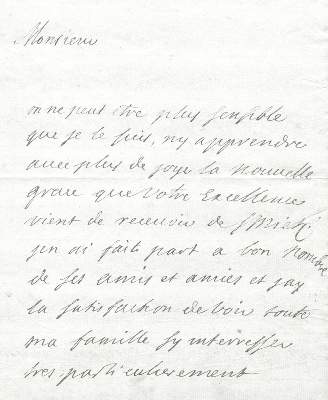 Monsieur
on ne peut être plus sensible
que je le suis, ny apprendre
avec plus de joye la nouvelle
grace que Votre Excellence
vient de recevoir de
j'en ai fait part a bon nombre
de ses amis et amies et j'ay
la satisfaction de voir toute
ma famille sy interresser
tres particulierement